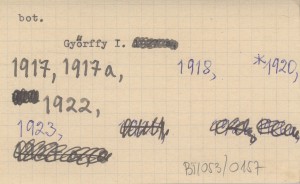 bot.
Győrffy I.
1917, 1917a, 1918, *1920,
1922,
1923,
BT/053/0157